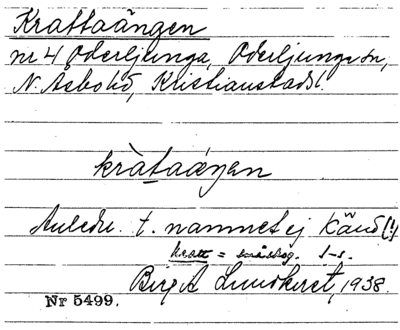 Krattaängen
nr 4 Oderljunga, Oderljunga sn,
N. Åsbo hd, Kristianstads l.
kràtaáŋen
Anledn. t. namnet ej känd (!)
kratt = småskog. I-s.
Birgit Lundkvist, 1938.
Nr 5499.